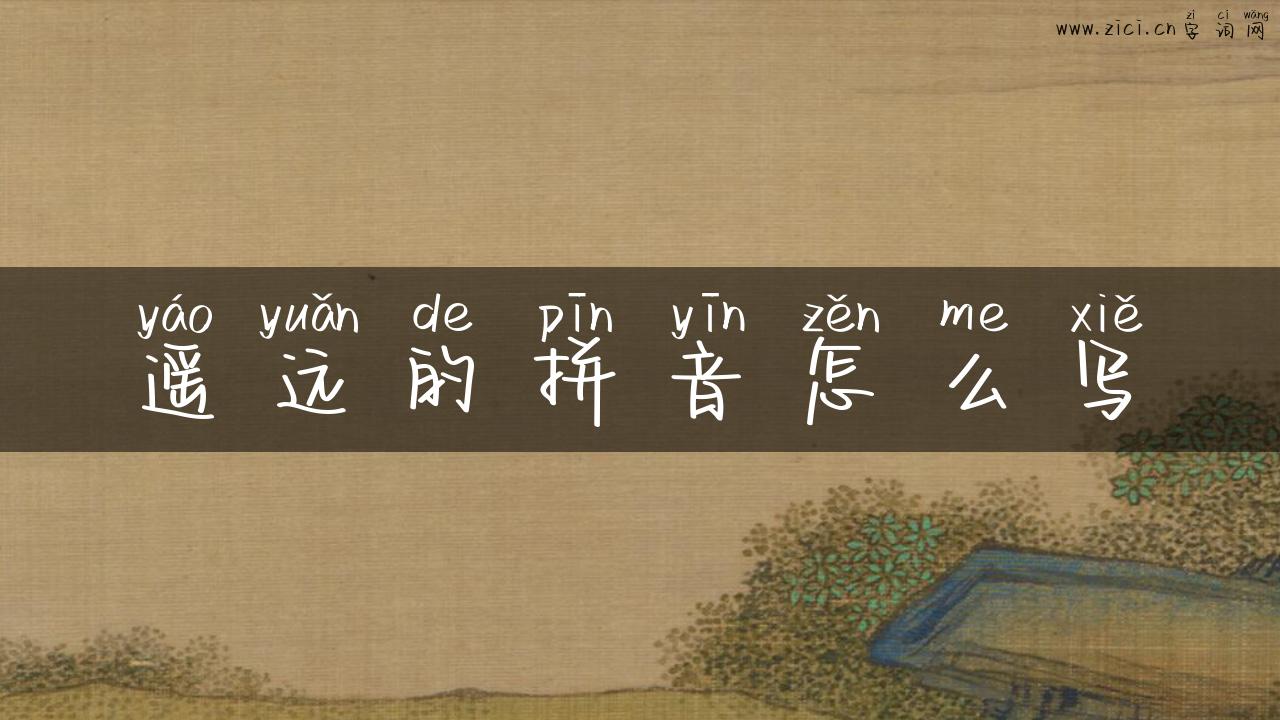 zì cí wǎng
www.zici.cn 字词网
yáo yuǎn de pīn yīn zěn me xiě
遥远的拼音怎么写